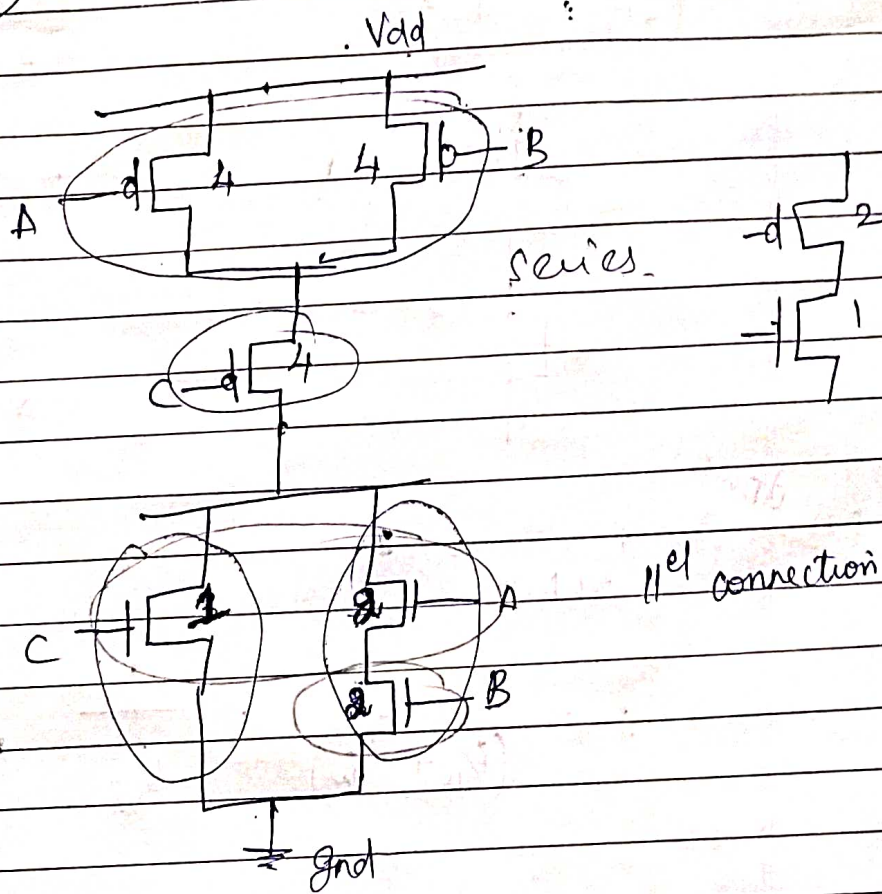 Vdd
4 4 B
A
series. 2
C 4 1
1 2 A
||el connection
C
2 B
gnd